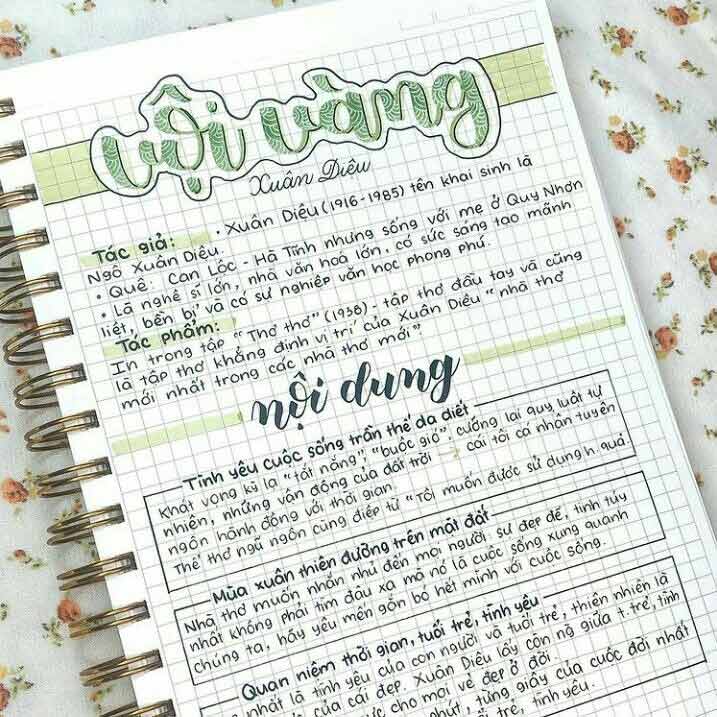 vội vàng
Xuân Diệu
Tác giả: • Xuân Diệu (1916-1985) tên khai sinh là
Ngô Xuân Diệu.
• Quê: Can Lộc - Hà Tĩnh nhưng sống với mẹ ở Quy Nhơn
• Là nghệ sĩ lớn, nhà văn hoá lớn, có sức sáng tạo mãnh
liệt, bền bỉ và có sự nghiệp văn học phong phú.
Tác phẩm:
In trong tập "Thơ thơ" (1938) - tập thơ đầu tay và cũng
là tập thơ khẳng định vị trí của Xuân Diệu "nhà thơ
mới nhất trong các nhà thơ mới".
nội dung
Tình yêu cuộc sống trần thế da diết
Khát vọng kỳ lạ "tắt nắng", "buộc gió", cưỡng lại quy luật tự
nhiên, những vận động của đất trời → cái tôi cá nhân tuyên
ngôn hành động với thời gian.
Thể thơ ngũ ngôn cùng điệp từ "Tôi muốn được sử dụng h. quả.
Mùa xuân thiên đường trên mặt đất
Nhà thơ muốn nhắn nhủ đến mọi người: sự đẹp đẽ, tinh túy
nhất không phải tìm đâu xa mà nó là cuộc sống xung quanh
chúng ta, hãy yêu mến gắn bó hết mình với cuộc sống.
Quan niệm thời gian, tuổi trẻ, tình yêu
nhất là tình yêu của con người và tuổi trẻ, thiên nhiên là
của cái đẹp. Xuân Diệu lấy con ng giữa t.trẻ, tình
cho mọi vẻ đẹp ở đời
phút, từng giây của cuộc đời nhất
trẻ, tình yêu.